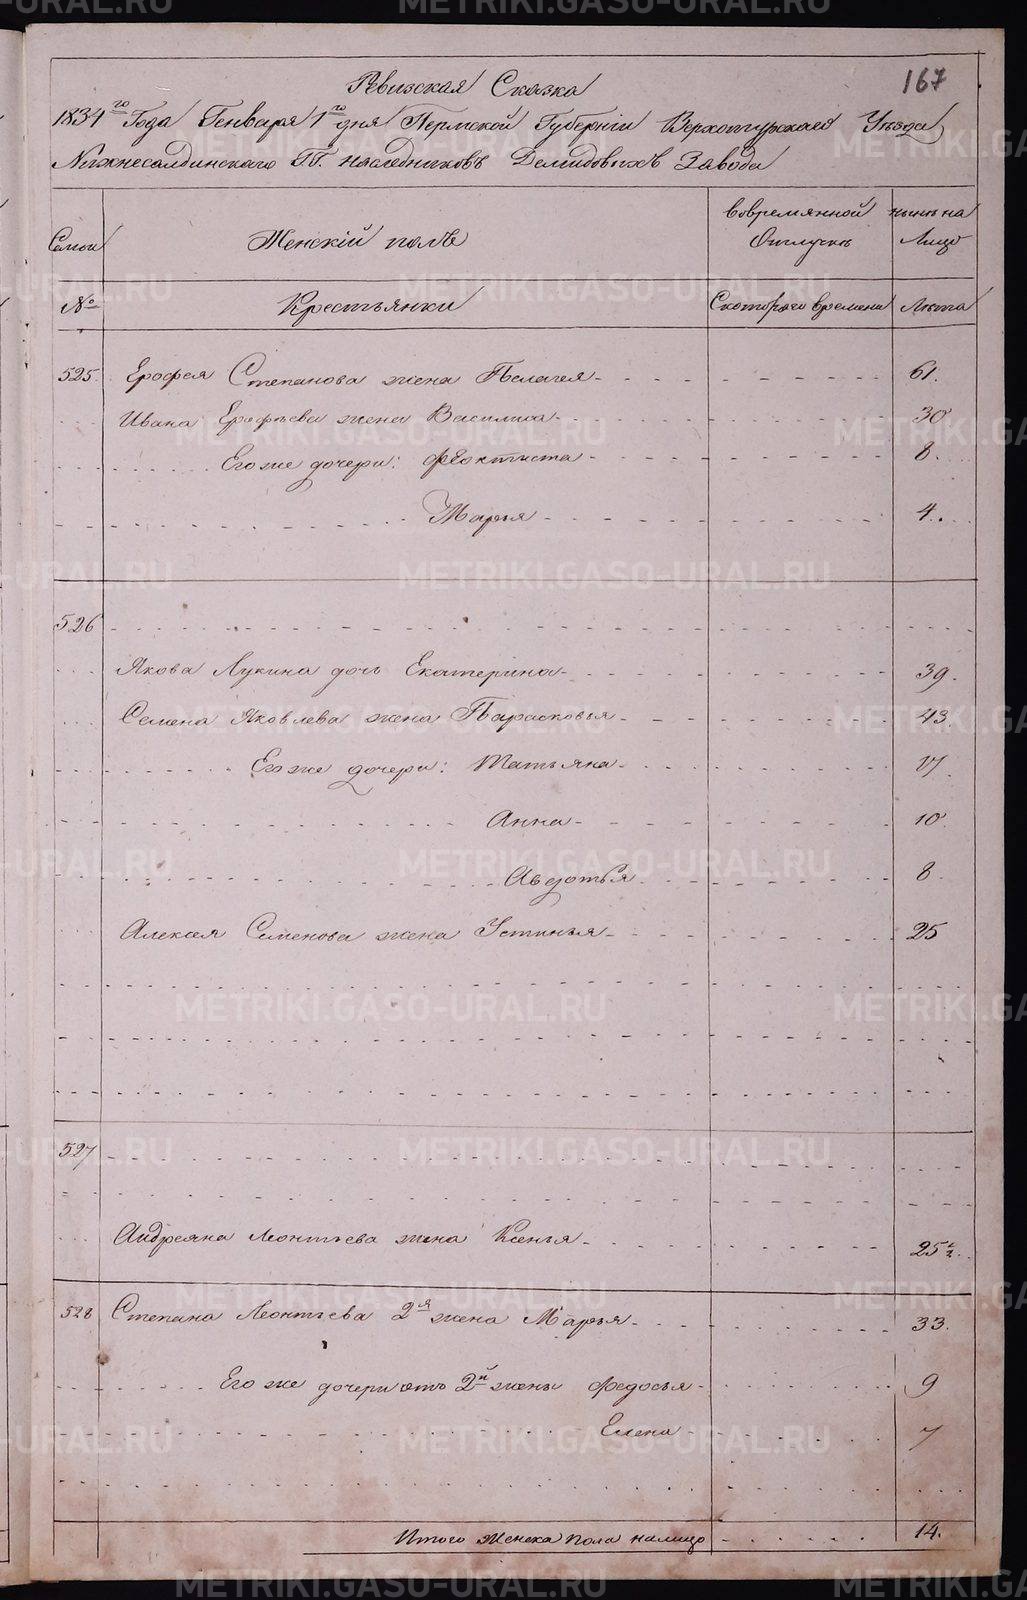 167
Ревизская Сказка
1834го Года Генваря 1го дня Пермской Губернiи Верхотурскаго Уезда
Нижнесалдинскаго ГГ. наследниковъ Демидовыхъ Завода
Семьи
Женскiй полъ
вовремянной Отлучкѣ
нынѣ на Лицо
№
Крестьянки
Скотораго времени
Лѣта
525. Ерофея Степанова жена Пелагея 61.
Ивана Ерофѣева жена Василиса 30
Его же дочери: Феоктиста 8.
Марья 4.
526
Якова Лукина дочь Екатерина 39.
Семена Яковлева жена Парасковья 43.
Его же дочери: Татьяна 17.
Анна 10.
Авдотья 8.
Алексея Семенова жена Устинья 25
527
Андреяна Леонтьева жена Ксенья 25½.
528 Степана Леонтьева 2я жена Марья 33.
Его же дочери отъ 2й жены Федосья 9
Елена 7
Итого Женска пола налицо 14.
METRIKI.GASO-URAL.RU